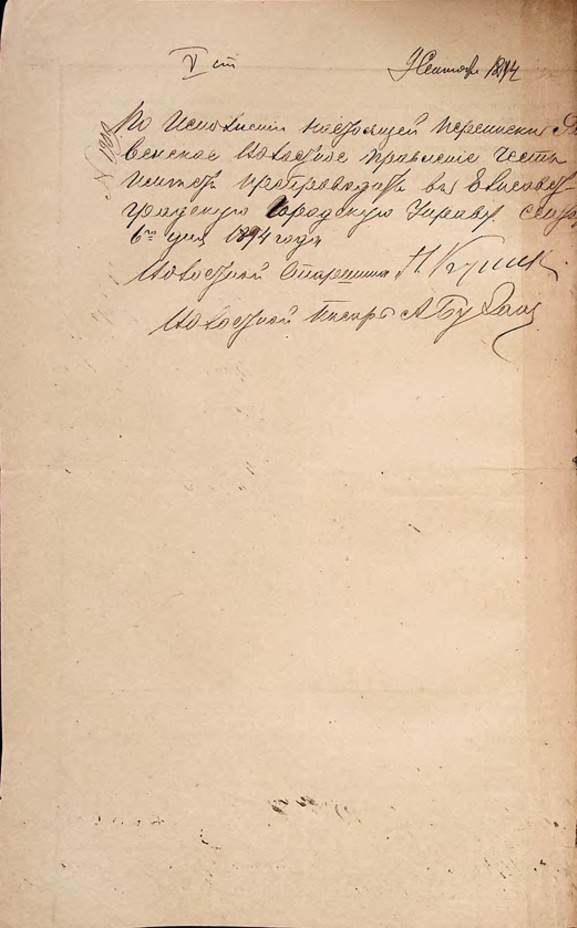 V ст
9 Сентяб 1894
По исполненіи настоящей переписки
венское Волостное Правленіе честь
имѣетъ препроводить въ Елисавет-
градскую Городскую Управу
6го дня 1894 года
Волостной Старшина
Волостной Писарь А